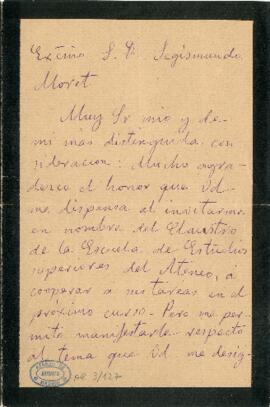 Excmo S. D. Segismundo
Moret
Muy Sr mio y de
mi más distinguida con
sideracion: Mucho agra-
desco el honor que Vd
me dispensa al invitarme
en nombre del Claustro
de la Escuela de Estudios
superiores del Ateneo, a
cooperar a sus tareas en el
próximo curso. Pero me per
mito manifestarle respecto
al tema que Vd me desig-
3/127